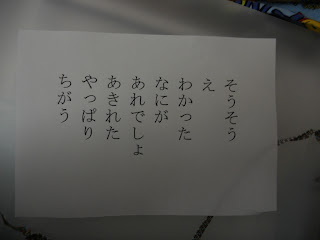 そうそう
え
わかった
なにが
あれでしょ
あきれた
やっぱり
ちがう